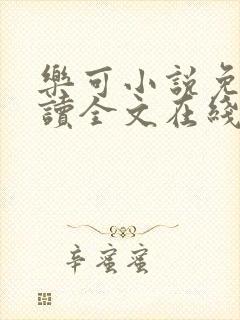 樂可小説免
讀全文在綫
辛蜜蜜